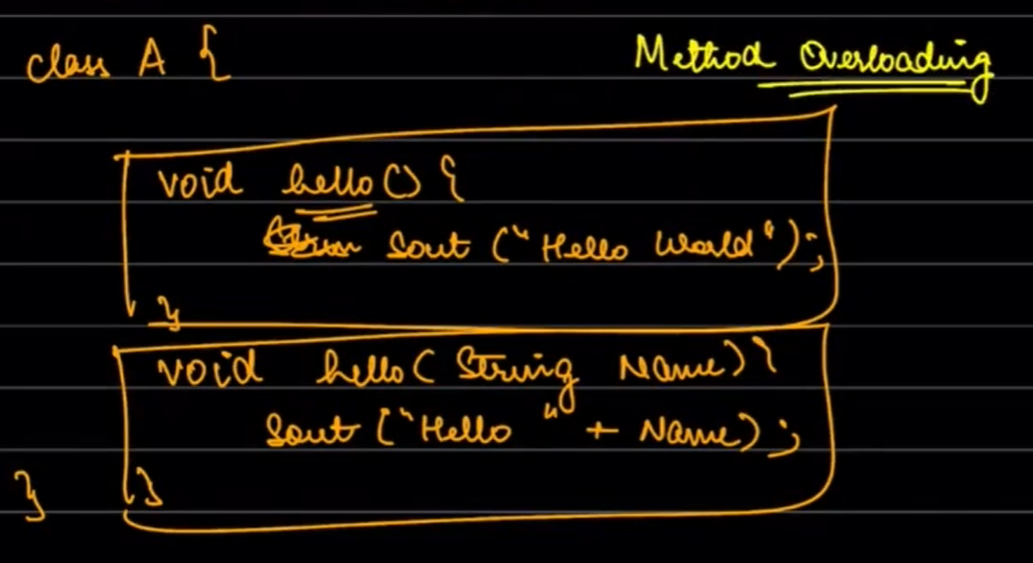 class A {
Method Overloading
void hello() {
Sout ("Hello World");
}
void hello( String Name) }
Sout ("Hello " + Name);
}
}